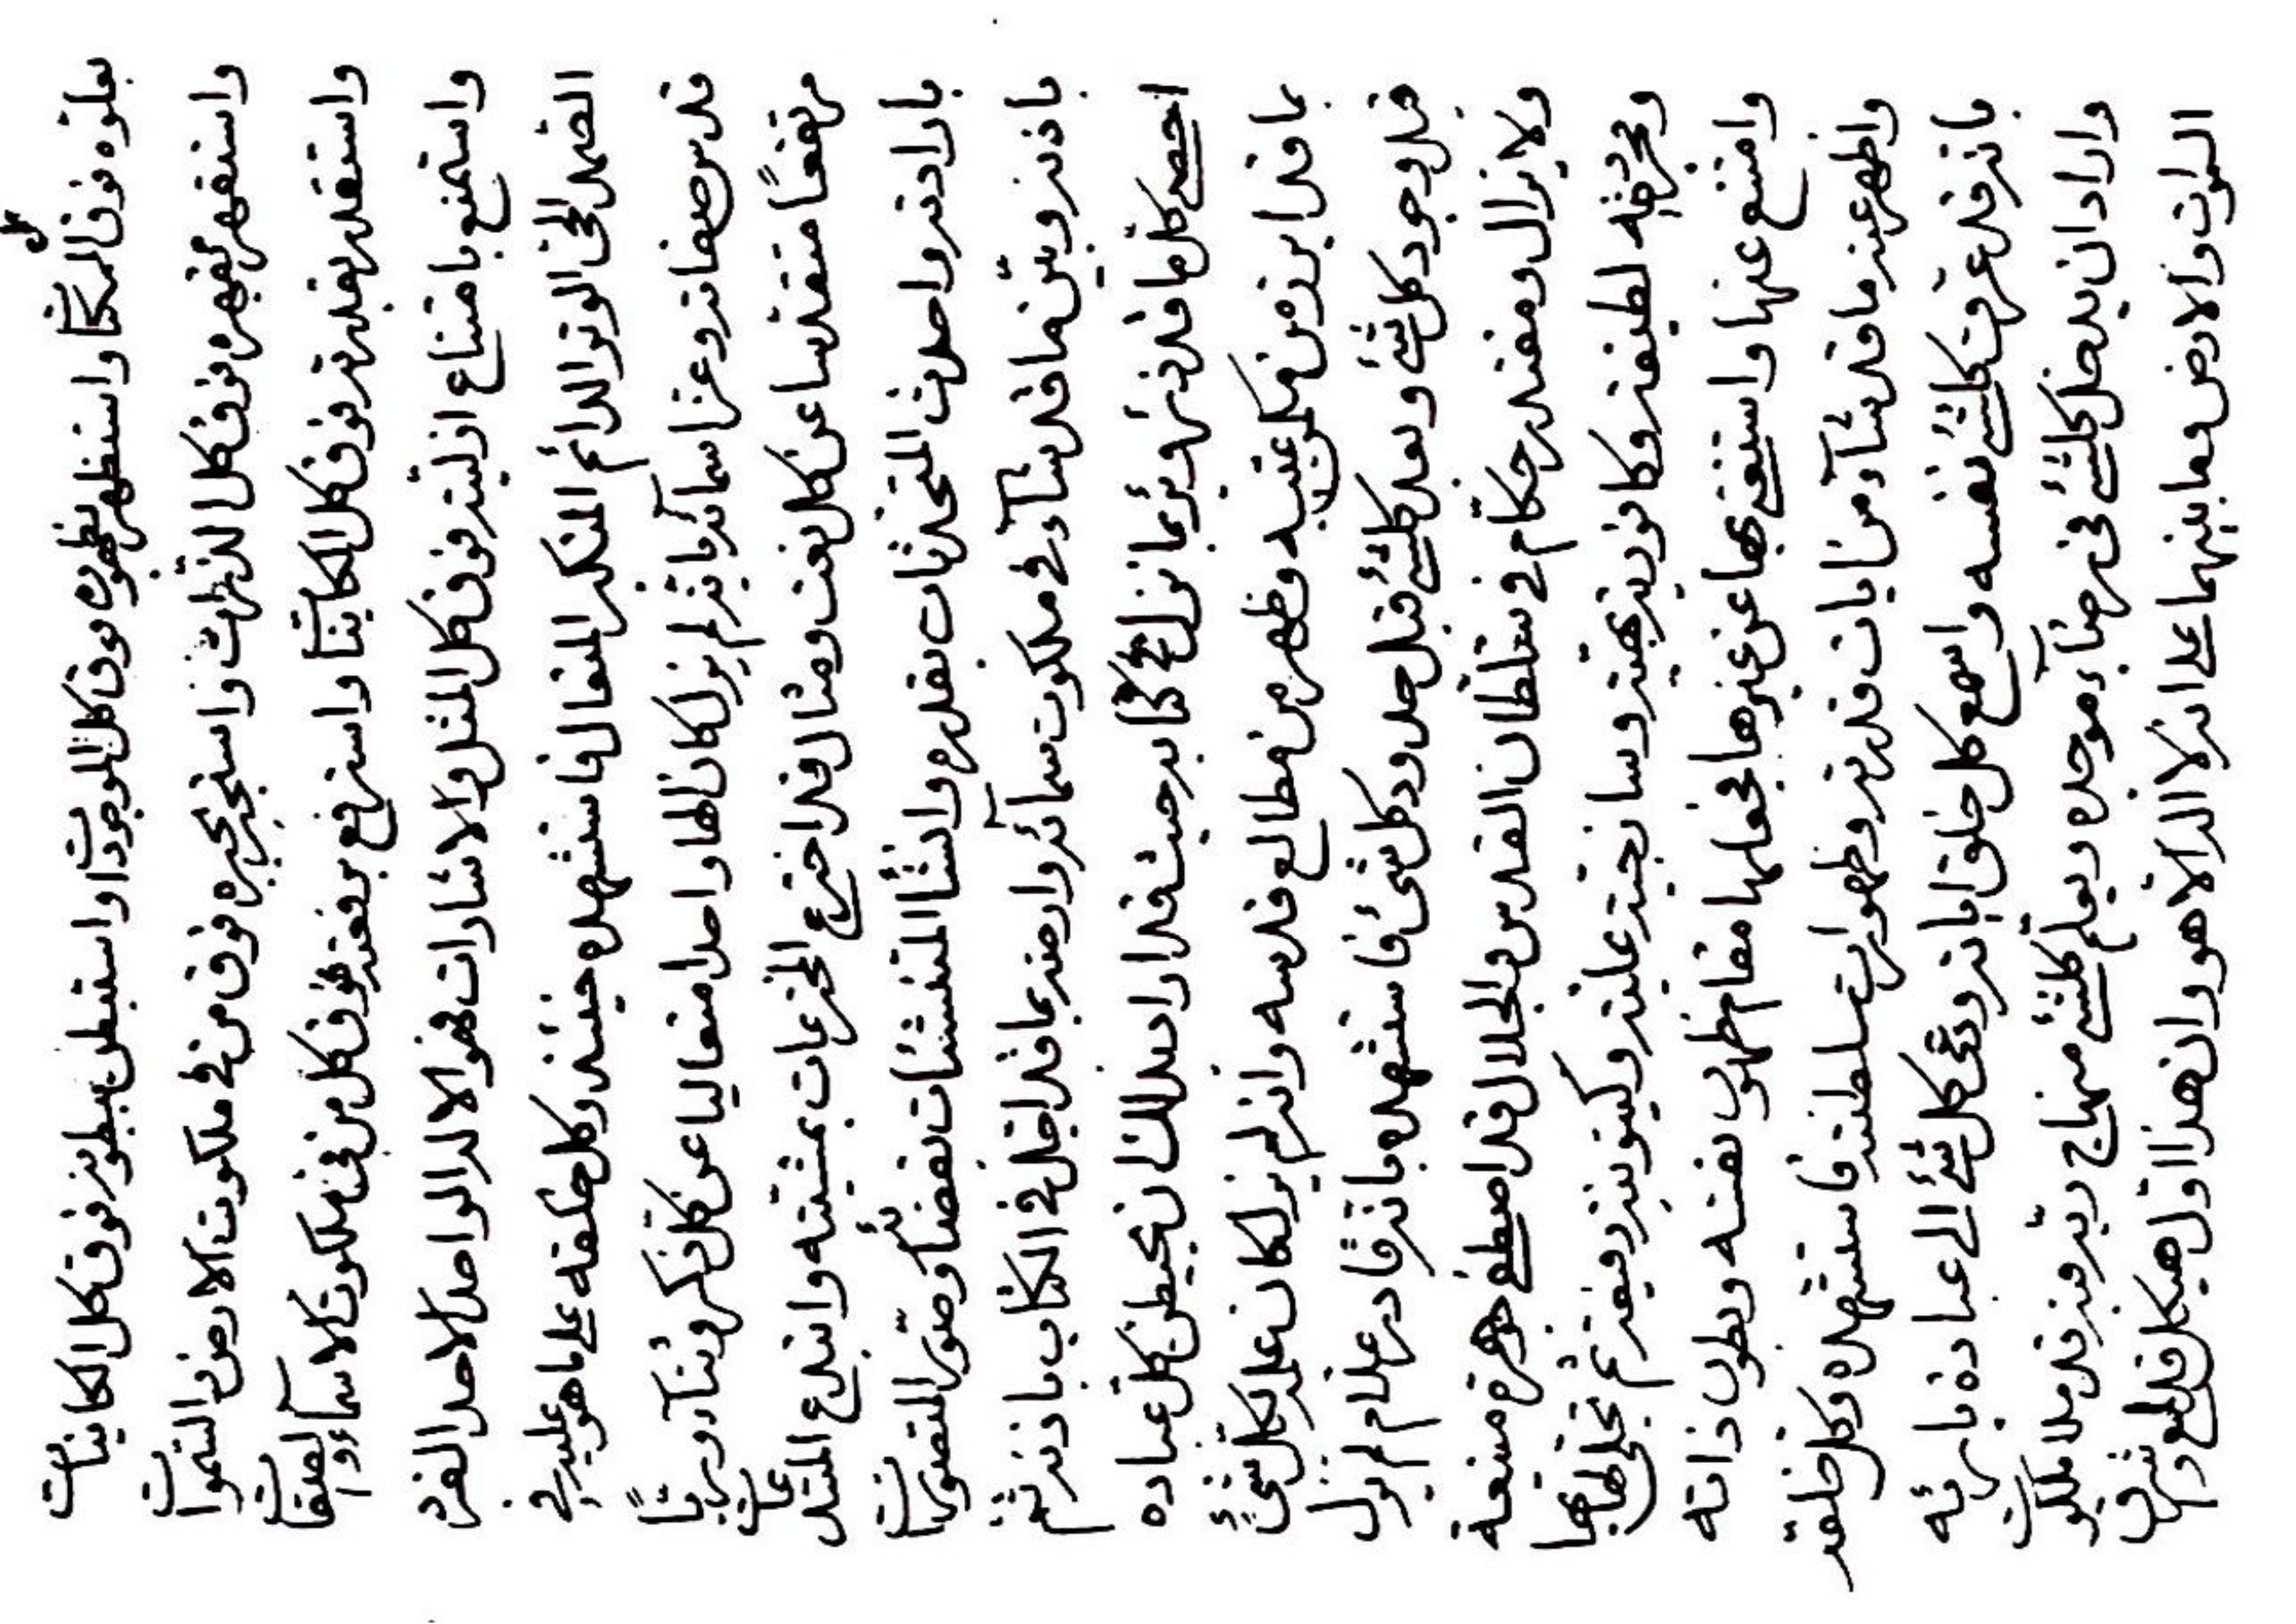 بعلوه فوق كل الممكنات واستظهر بظهوره فوق كل الموجودات واستبطن ببطونه فوق كل الكاينات
واستقهر بقهره فوق كل الذرات واستجبر بجبره فوق من فى ملكوت الارض والسموات
واستقدر بقدرته فوق كل الكاينات واسترفع برفعته فوق كل من فى ملكوت الاسمآء والصفات
واستمنع بامتناع ازليته فوق كل المثل والاشارات فهو الاله الواحد الاحد الفرد
الصمد الحى الوتر الدائم المتكبر المتعال فاستشهده حينئذ وكل خلقه على ما هو عليه فى
قدس صفاته وعز اسمآئه بانه لم يزل كان الها واحدا متعاليا عن كل ذكر وثنآء ورباً
مرتفعاً متقدسا عن كل نعت ومثال قد اخترع المخترعات بمشيته وابدع المبتدعات
بارادته واحدث المتحدثات بقدره وانشأ المتنشئات بقضائه وصور المتصورات
باذنه وبيّن ما قد شآء فى ملكوت سمآئه وارضه بما قد اجل فى الكتاب باذنه ثم
احصى كل ما قد ذرء وبرء بما نزل فى كتابه حيث قد اراد بذلك ان يحيطن كل عباده
بما قد ابرز من مكمن غيبه وظهر من مطالع قدسه وانه لم يزل كان علمه بكل شئ
قبل وجود كل شئ وبعد كلشئ قبل حدود كل شئ فاستشهده بانه قادر علام لم يزل
ولا يزال ومقتدر حكام فى سلطان القدس والجلال قد اصطفى جوهرة ممتنعة
ومجردة لطيفة وكافورية بهية وساذجية علية وكينونية رفيعة ثم تجلى لها بها
وامتنع عنها واستغنى بها عن غيرها فجعلها مقام ظهور نفسه وبطون ذاته
واظهر عنه ما قد شآء من ايات قدرته وظهورات سلطنته فاستشهده وكل خلقه
بانه قد عرف كلشئ نفسه واسمع كل خلق اياته ودعى كل شئ الى عباده بارئه
واراد ان يدخل كلشئ فى رضآء موحده ويعلم كلشئ منهاج ربه فبه قد ملأ ملكوت
السموات والارض وما بينهما على انه لا اله الا هو وان هذا اول هيكل قد لمع وشرق